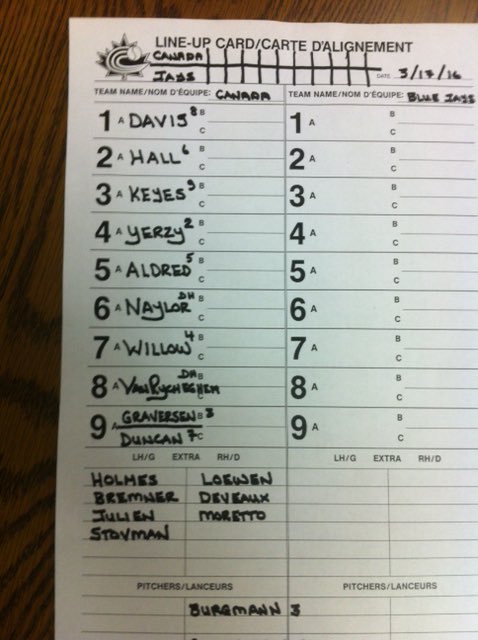 LINE-UP CARD/CARTE D'ALIGNEMENT
CANADA
JAYS
DATE 3/17/16
TEAM NAME/NOM D'ÉQUIPE: CANADA
TEAM NAME/NOM D'ÉQUIPE: BLUE JAYS
1 A DAVIS 8 B C
2 A HALL 6 B C
3 A KEYES 9 B C
4 A YERZY 2 B C
5 A ALDRED 5 B C
6 A NAYLOR DH B C
7 A WILLOW 4 B C
8 A VANPYCHEGHEM DH B C
9 A GRAVERSEN B 3
DUNCAN 7 C
1 A B C
2 A B C
3 A B C
4 A B C
5 A B C
6 A B C
7 A B C
8 A B C
9 A B C
LH/G EXTRA RH/D
HOLMES LOEWEN
BREMNER DEVEAUX
JULIEN MORETTO
STOVMAN
PITCHERS/LANCEURS
BURGMANN 3
LH/G EXTRA RH/D
PITCHERS/LANCEURS